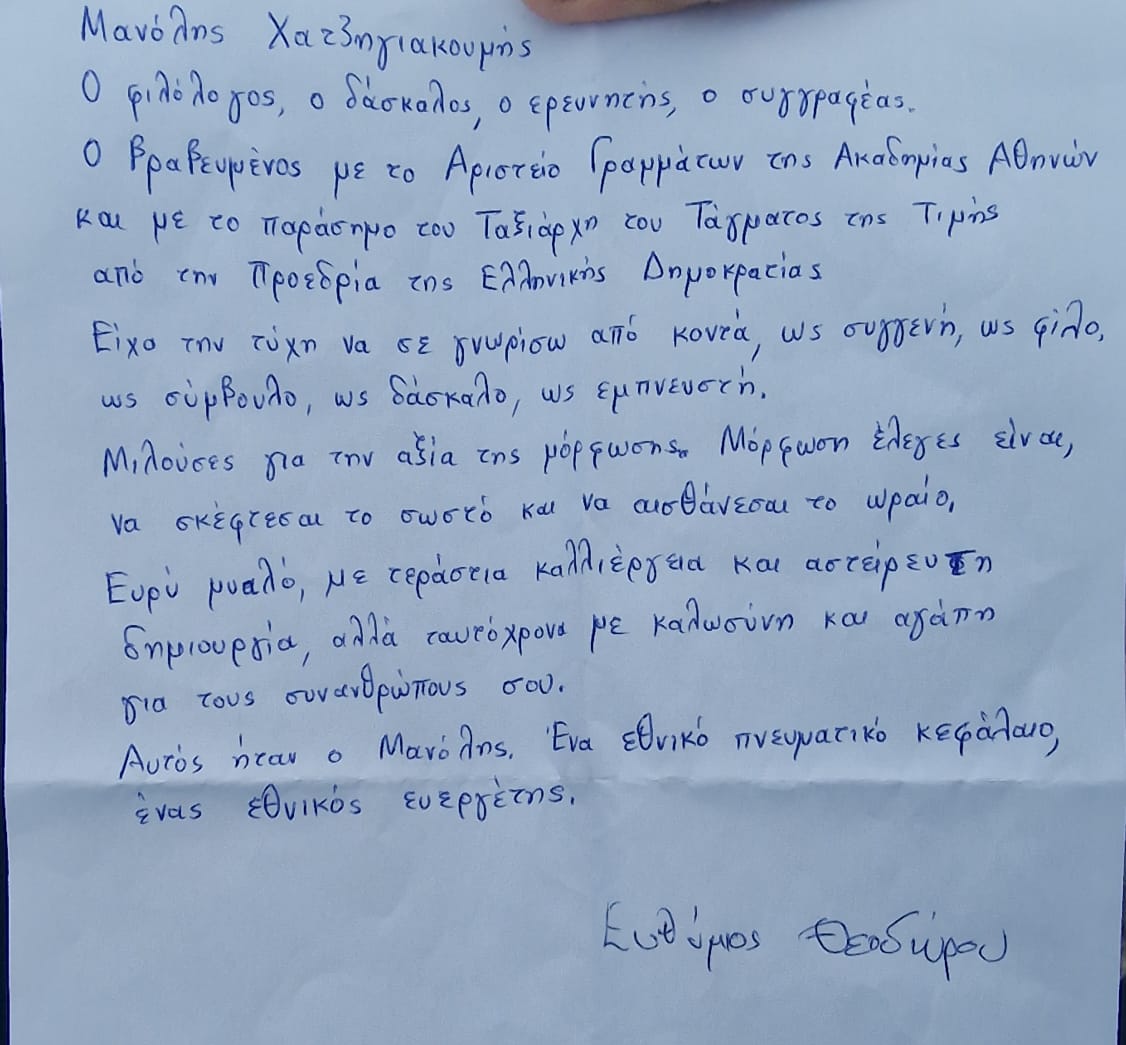 Μανόλης Χατζηγιακουμής
Ο φιλόλογος, ο δάσκαλος, ο ερευνητής, ο συγγραφέας.
Ο βραβευμένος με το Αριστείο Γραμμάτων της Ακαδημίας Αθηνών
και με το παράσημο του Ταξιάρχη του Τάγματος της Τιμής
από την Προεδρία της Ελληνικής Δημοκρατίας
Είχα την τύχη να σε γνωρίσω από κοντά, ως συγγενή, ως φίλο,
ως σύμβουλο, ως δάσκαλο, ως εμπνευστή.
Μιλούσες για την αξία της μόρφωσης. Μόρφωση έλεγες είναι,
να σκέφτεσαι το σωστό και να αισθάνεσαι το ωραίο.
Ευρύ μυαλό, με τεράστια καλλιέργεια και αστείρευτη
δημιουργία, αλλά ταυτόχρονα με καλωσύνη και αγάπη
για τους συνανθρώπους σου.
Αυτός ήταν ο Μανόλης. Ένα εθνικό πνευματικό κεφάλαιο,
ένας εθνικός ευεργέτης.
Ευθύμιος Θεοδώρου